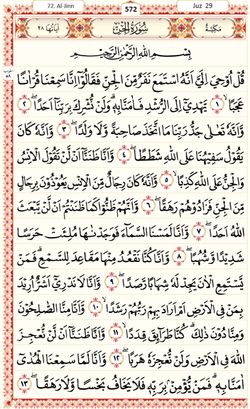 72. Al-Jinn
572
Juz 29
مكية سُورَةُ الْجِنِّ آياتها ٢٨
بِسْمِ اللهِ الرَّحْمٰنِ الرَّحِيْمِ
قُلْ أُوْحِيَ إِلَيَّ أَنَّهُ اسْتَمَعَ نَفَرٌ مِنَ الْجِنِّ فَقَالُوْا إِنَّا سَمِعْنَا قُرْاٰنًا
عَجَبًا ﴿١﴾ يَهْدِيْ إِلَى الرُّشْدِ فَاٰمَنَّا بِهِ ۖ وَلَنْ نُشْرِكَ بِرَبِّنَا أَحَدًا ﴿٢﴾
وَأَنَّهُ تَعَالٰى جَدُّ رَبِّنَا مَا اتَّخَذَ صَاحِبَةً وَلَا وَلَدًا ﴿٣﴾ وَأَنَّهُ كَانَ
يَقُوْلُ سَفِيْهُنَا عَلَى اللهِ شَطَطًا ﴿٤﴾ وَأَنَّا ظَنَنَّا أَنْ لَنْ تَقُوْلَ الْإِنْسُ
وَالْجِنُّ عَلَى اللهِ كَذِبًا ﴿٥﴾ وَأَنَّهُ كَانَ رِجَالٌ مِنَ الْإِنْسِ يَعُوْذُوْنَ بِرِجَالٍ
مِنَ الْجِنِّ فَزَادُوْهُمْ رَهَقًا ﴿٦﴾ وَأَنَّهُمْ ظَنُّوْا كَمَا ظَنَنْتُمْ أَنْ لَنْ يَبْعَثَ
اللهُ أَحَدًا ﴿٧﴾ وَأَنَّا لَمَسْنَا السَّمَاءَ فَوَجَدْنَاهَا مُلِئَتْ حَرَسًا
شَدِيْدًا وَشُهُبًا ﴿٨﴾ وَأَنَّا كُنَّا نَقْعُدُ مِنْهَا مَقَاعِدَ لِلسَّمْعِ ۖ فَمَنْ
يَسْتَمِعِ الْاٰنَ يَجِدْ لَهُ شِهَابًا رَصَدًا ﴿٩﴾ وَأَنَّا لَا نَدْرِيْ أَشَرٌّ أُرِيْدَ
بِمَنْ فِي الْأَرْضِ أَمْ أَرَادَ بِهِمْ رَبُّهُمْ رَشَدًا ﴿١٠﴾ وَأَنَّا مِنَّا الصَّالِحُوْنَ
وَمِنَّا دُوْنَ ذٰلِكَ ۖ كُنَّا طَرَائِقَ قِدَدًا ﴿١١﴾ وَأَنَّا ظَنَنَّا أَنْ لَنْ نُعْجِزَ
اللهَ فِي الْأَرْضِ وَلَنْ نُعْجِزَهُ هَرَبًا ﴿١٢﴾ وَأَنَّا لَمَّا سَمِعْنَا الْهُدٰى
اٰمَنَّا بِهِ ۖ فَمَنْ يُؤْمِنْ بِرَبِّهِ فَلَا يَخَافُ بَخْسًا وَلَا رَهَقًا ﴿١٣﴾